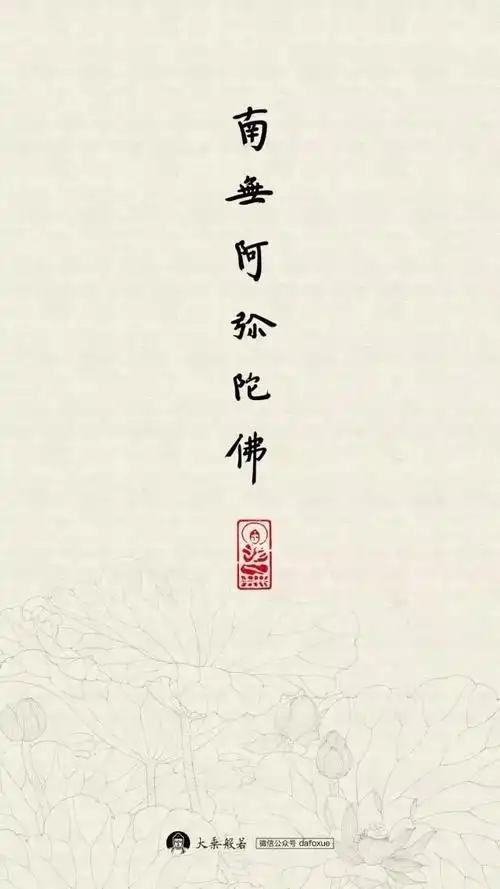 南無阿弥陀佛
大乘般若 微信公众号 dafoxue